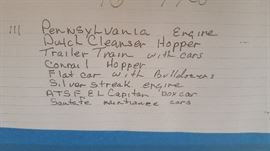 111 Pennsylvania Engine
Dutch Cleanser Hopper
Trailer Train with cars
Conrail Hopper
Flat car with Bulldozers
Silver streak engine
ATSF EL Capitan box car
Santafe maintiance cars